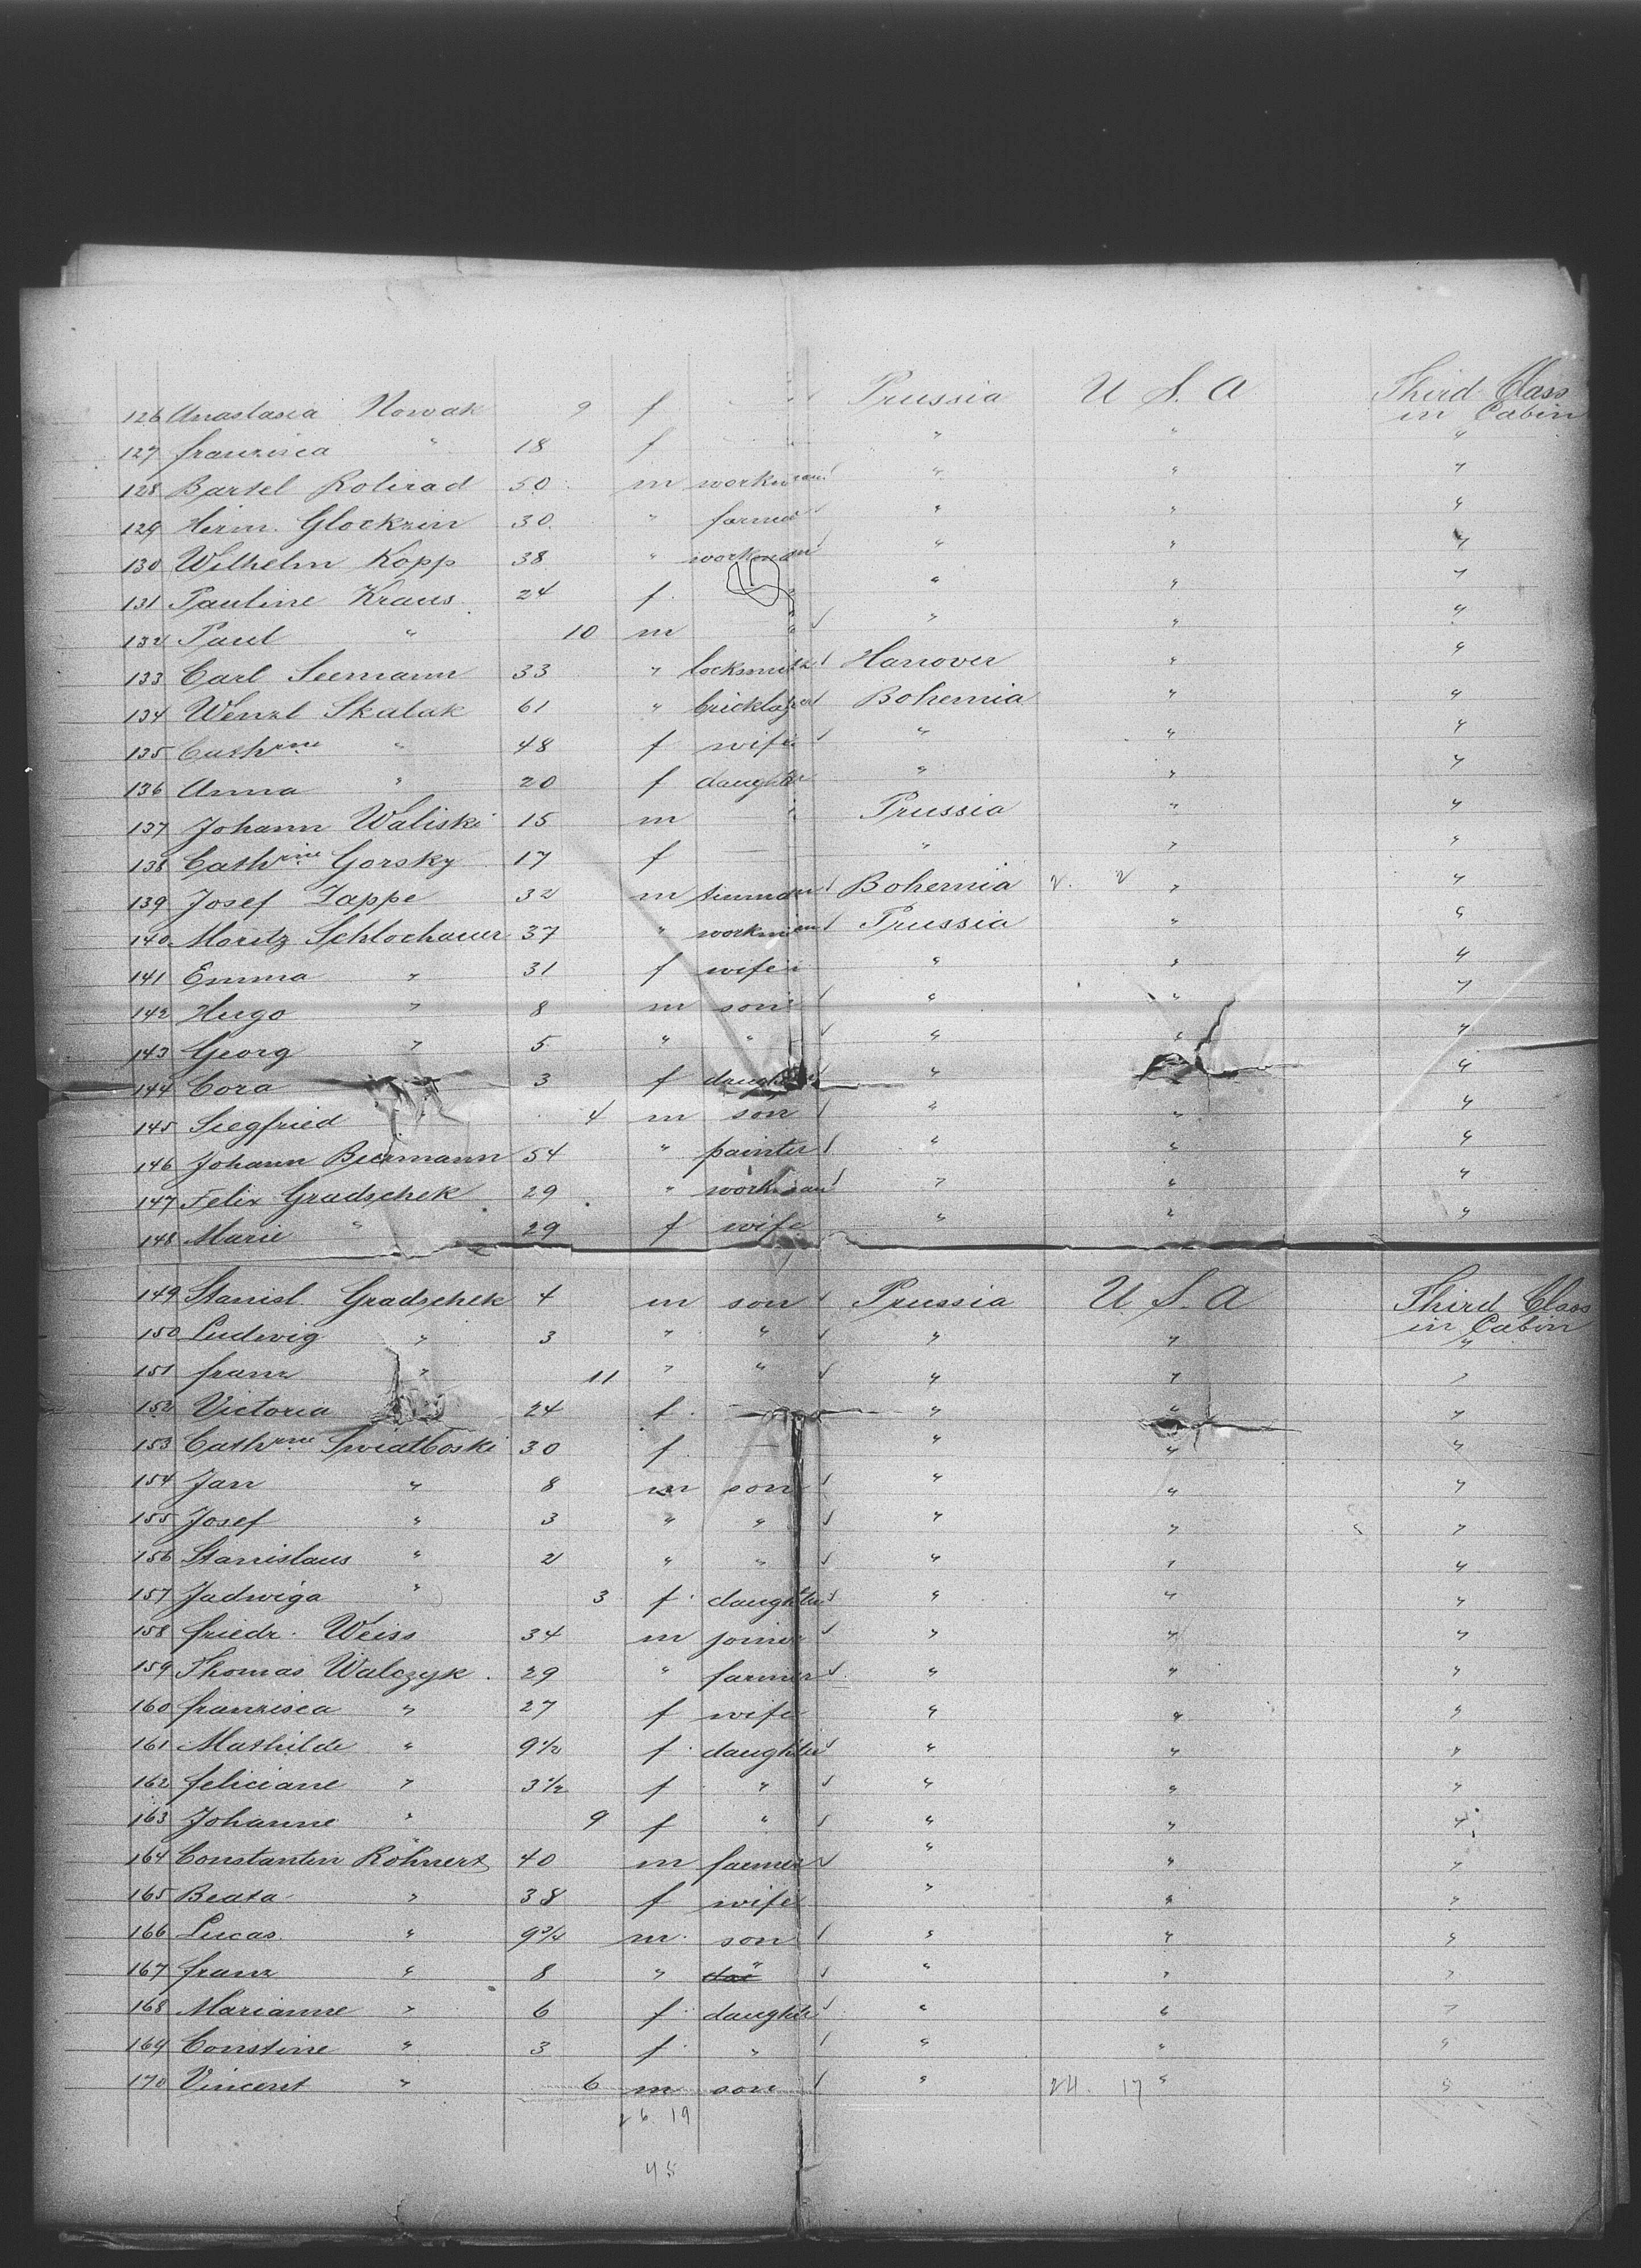 126 Anastasia Nowak 9 f " Prussia U. S. A Third Class in Cabin
127 franzisca " 18 f " " " "
128 Bartel Rolirad 50 m workman " " "
129 Herm. Glockzin 30 " farmer " " "
130 Wilhelm Kopp 38 " workman " " "
131 Pauline Kraus 24 f " " " "
132 Paul " 10 m " " " "
133 Carl Seemann 33 " locksmith Hanover " "
134 Wenzl Skalak 61 " bricklayer Bohemia " "
135 Cathrine " 48 f wife " " "
136 Anna " 20 f daughter " " "
137 Johann Waliski 15 m " Prussia " "
138 Cathrine Gorsky 17 f — " " "
139 Josef Zappe 32 m Bohemia " "
140 Moritz Schlochauer 37 " workman Prussia " "
141 Emma " 31 f wife " " "
142 Hugo " 8 m son " " "
143 Georg " 5 " " " " "
144 Cora " 3 f daughter " " "
145 Siegfried " 4 m son " " "
146 Johann Biermann 54 " painter " " "
147 Felix Gradschek 29 " workman " " "
148 Marie " 29 f wife " " "
149 Stanisl. Gradschek 4 m son Prussia U. S. A Third Class in Cabin
150 Ludwig " 3 " " " " "
151 franz " 11 " " " " "
152 Victoria " 24 f. — " " "
153 Cathrine Swiatboski 30 f. — " " "
154 Jan " 8 m son " " "
155 Josef " 3 " " " " "
156 Stanislaus " 2 " " " " "
157 Jadwiga " 3 f. daughter " " "
158 friedr. Weiss 34 m joiner " " "
159 Thomas Walczyk 29 " farmer " " "
160 franzisca " 27 f wife " " "
161 Mathilde " 9 1/2 f. daughter " " "
162 feliciane " 3 1/2 f " " " "
163 Johanne " 9 f " " " "
164 Constantin Röhnert 40 m farmer " " "
165 Beata " 38 f wife " " "
166 Lucas " 9 3/4 m. son " " "
167 franz " 8 " " " " "
168 Marianne " 6 f. daughter " " "
169 Constine " 3 f. " " " "
170 Vincent " 6 m son " 24. 17 " "
26 19
45